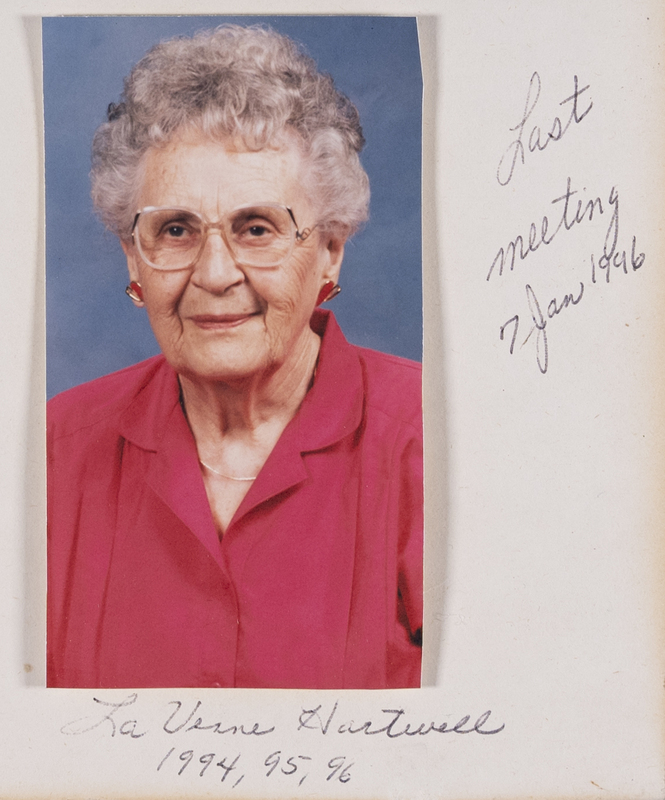 Last
meeting
7 Jan 1996
La Verne Hartwell
1994, 95, 96